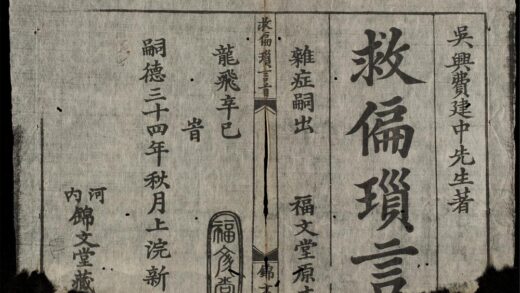 吳興費建中先生著
救偏瑣言
雜症嗣出 福文堂原
救偏瑣言
錦
龍飛辛巳
福文堂
旹
嗣德三十四年秋月上浣新
河內錦文堂藏